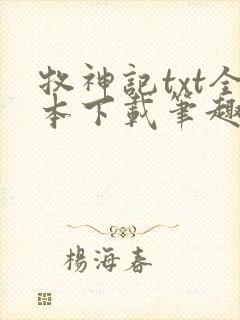 牧神記txt全
本下載筆趣
楊海春